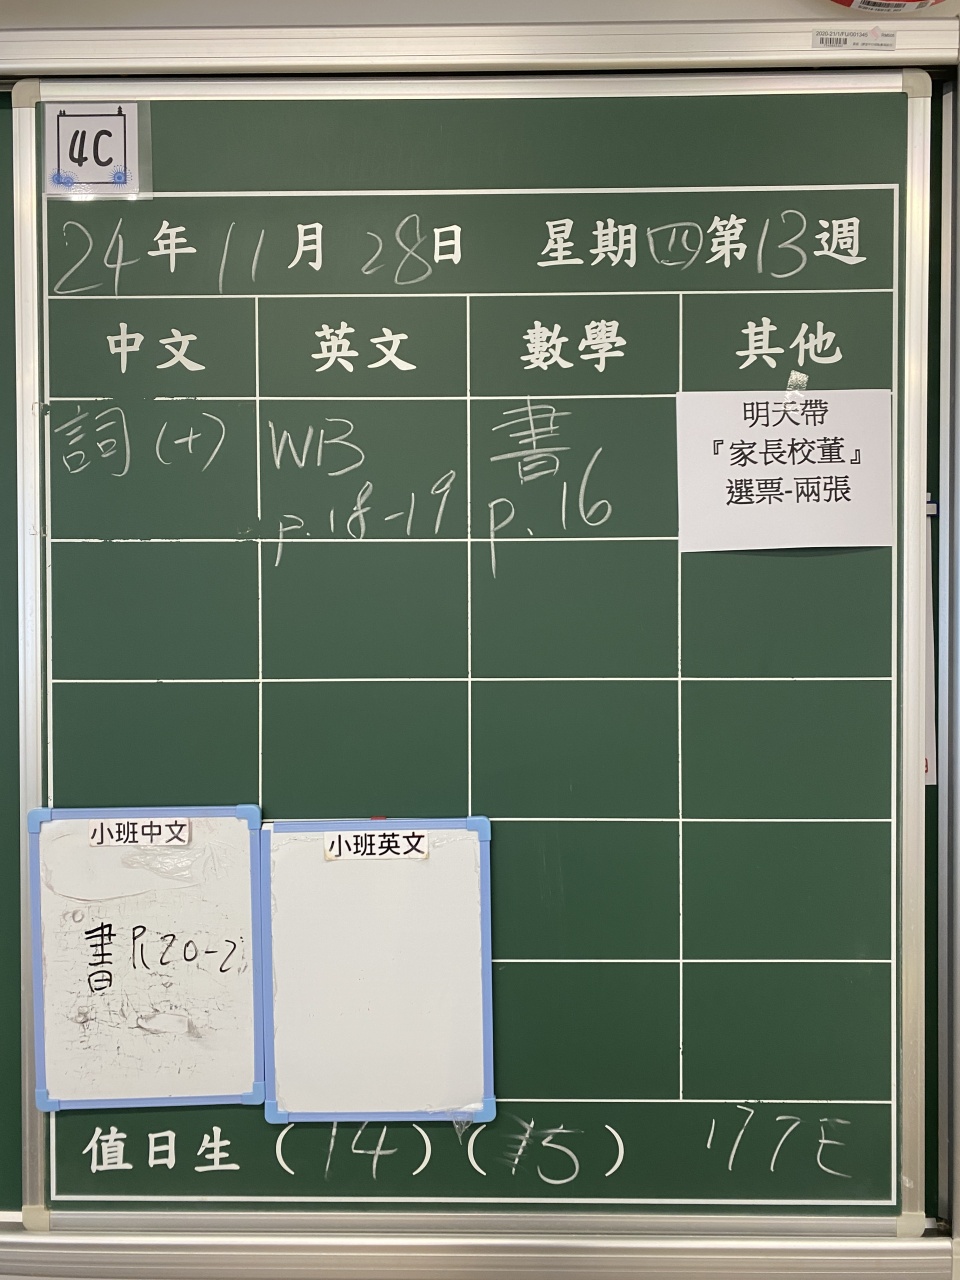 4C
24年11月28日 星期四第13週
中文 英文 數學 其他
詞(十)
WB
p.18-19
書
p.16
明天帶
『家長校董』
選票-兩張
小班中文
書
小班英文
值日生(14)(15)